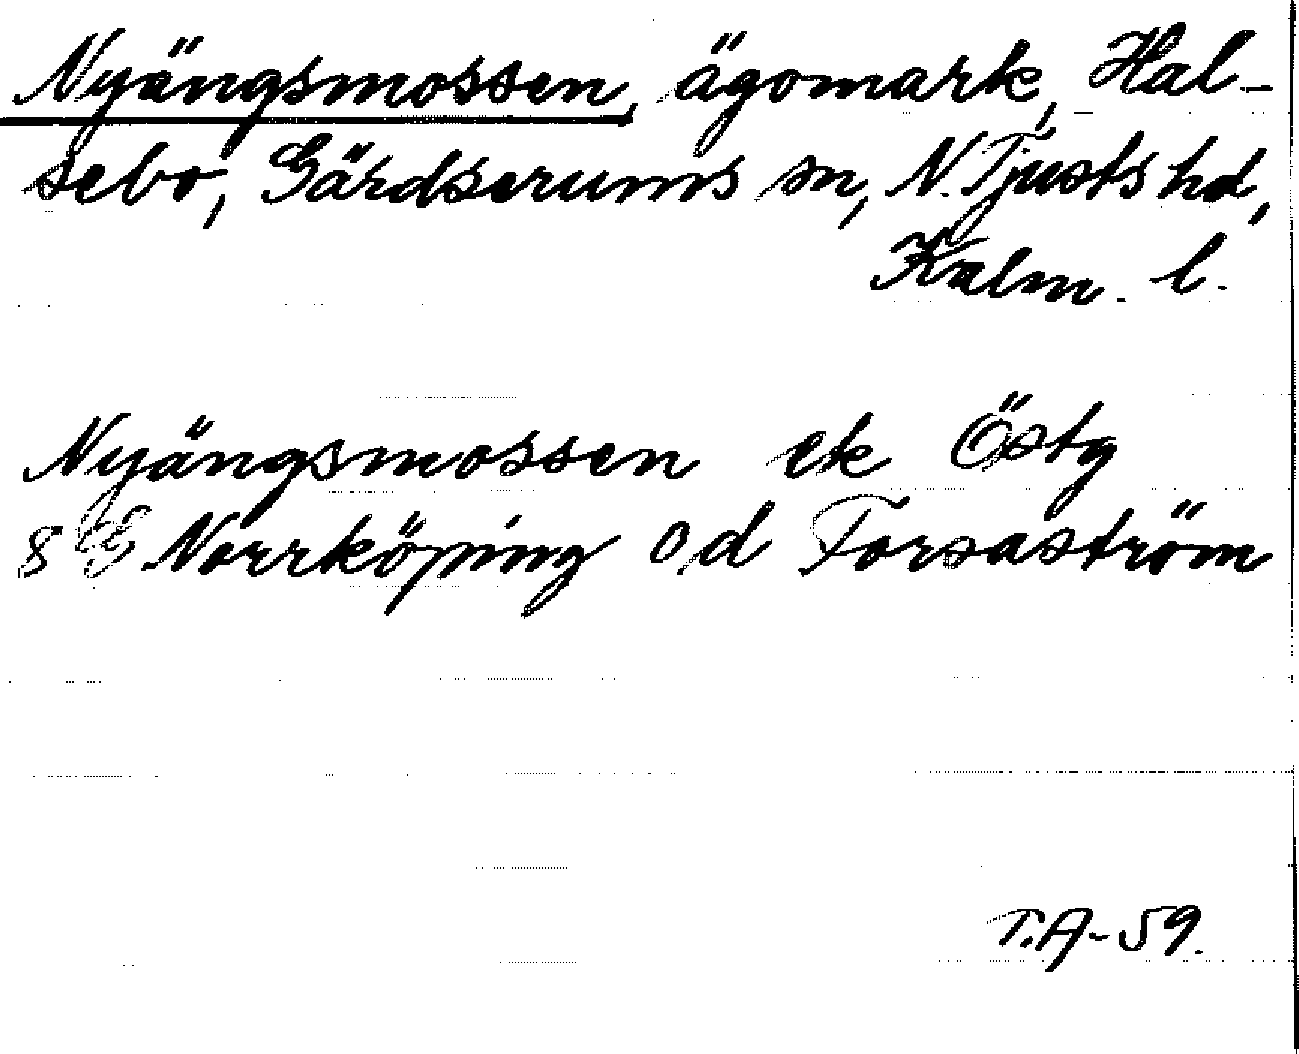 Nyängsmossen, ägomark, Hal-
sebo, Gärdserums sn, N. Tjusts hd,
Kalm. l.
Nyängsmossen ek Östg
8 G Norrköping o,d Forsaström
T.A-59.